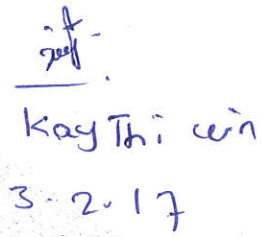 Kay Thi win
3.2.17